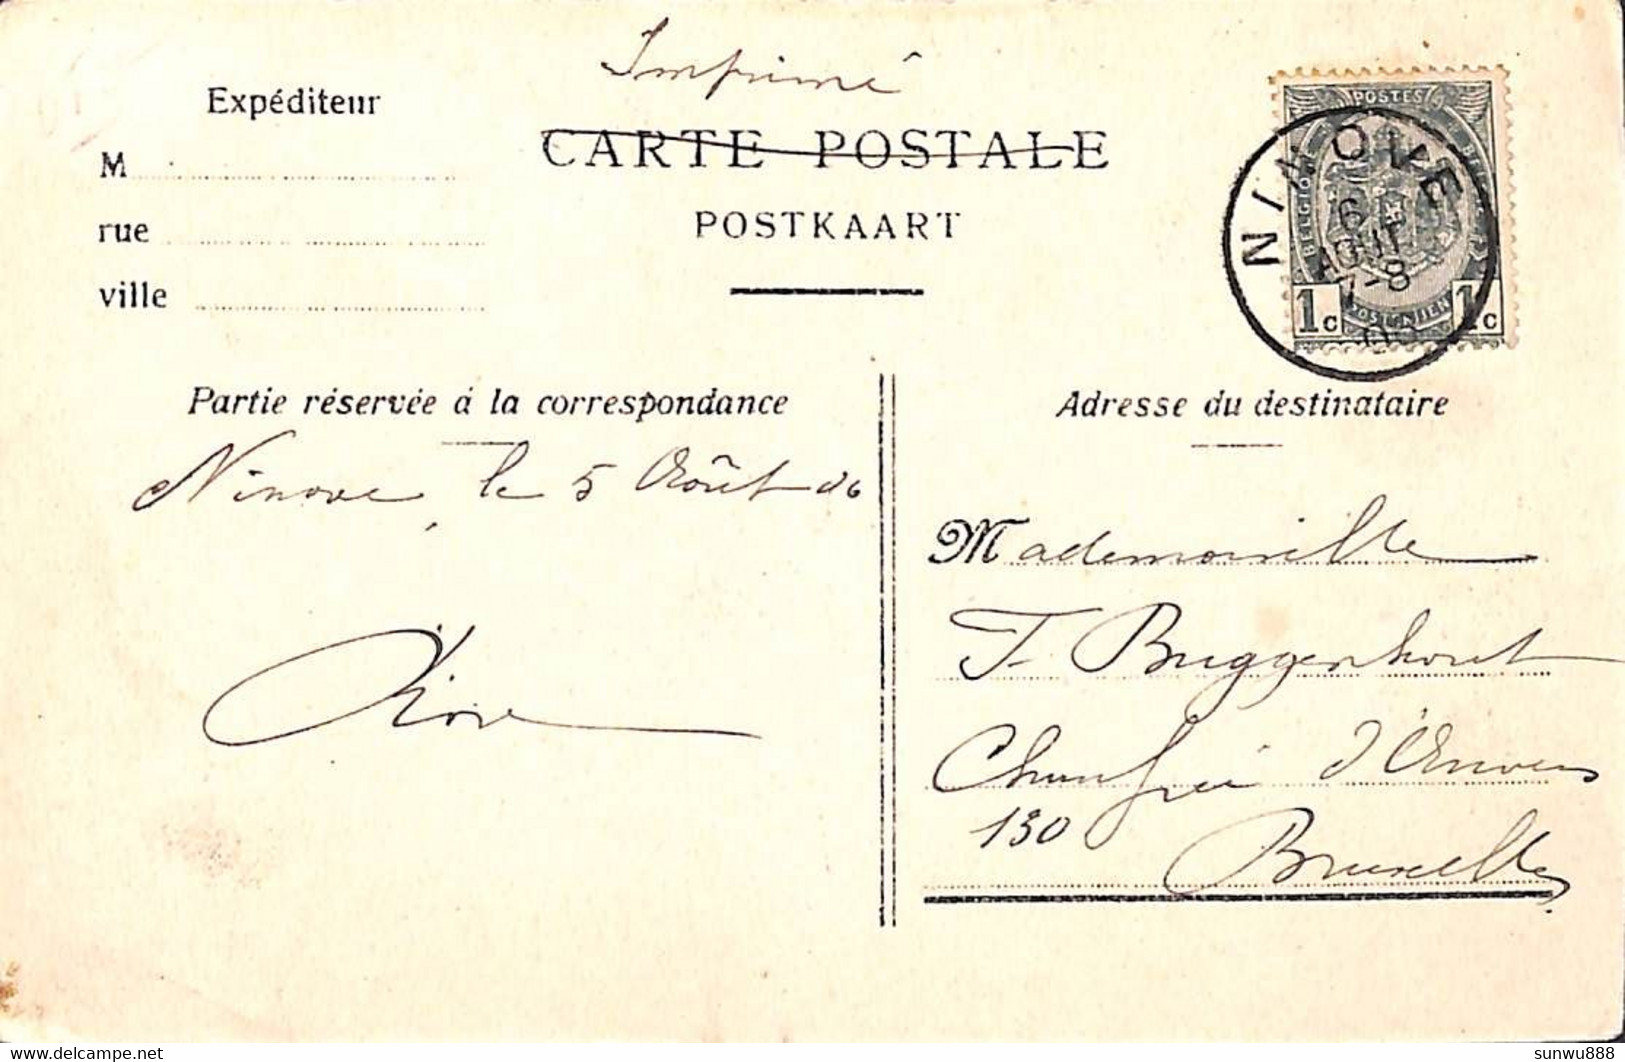 Imprimé
Expéditeur
CARTE POSTALE
M
rue
POSTKAART
ville
POSTES
BELGIQUE
NINOVE
6
AOUT
7-8
1c
1c
Partie réservée à la correspondance
Adresse du destinataire
Ninove, le 5 Août 06
Mademoiselle
F. Buggenhout
d'Anvers
130
Bruxelles
sunwu888